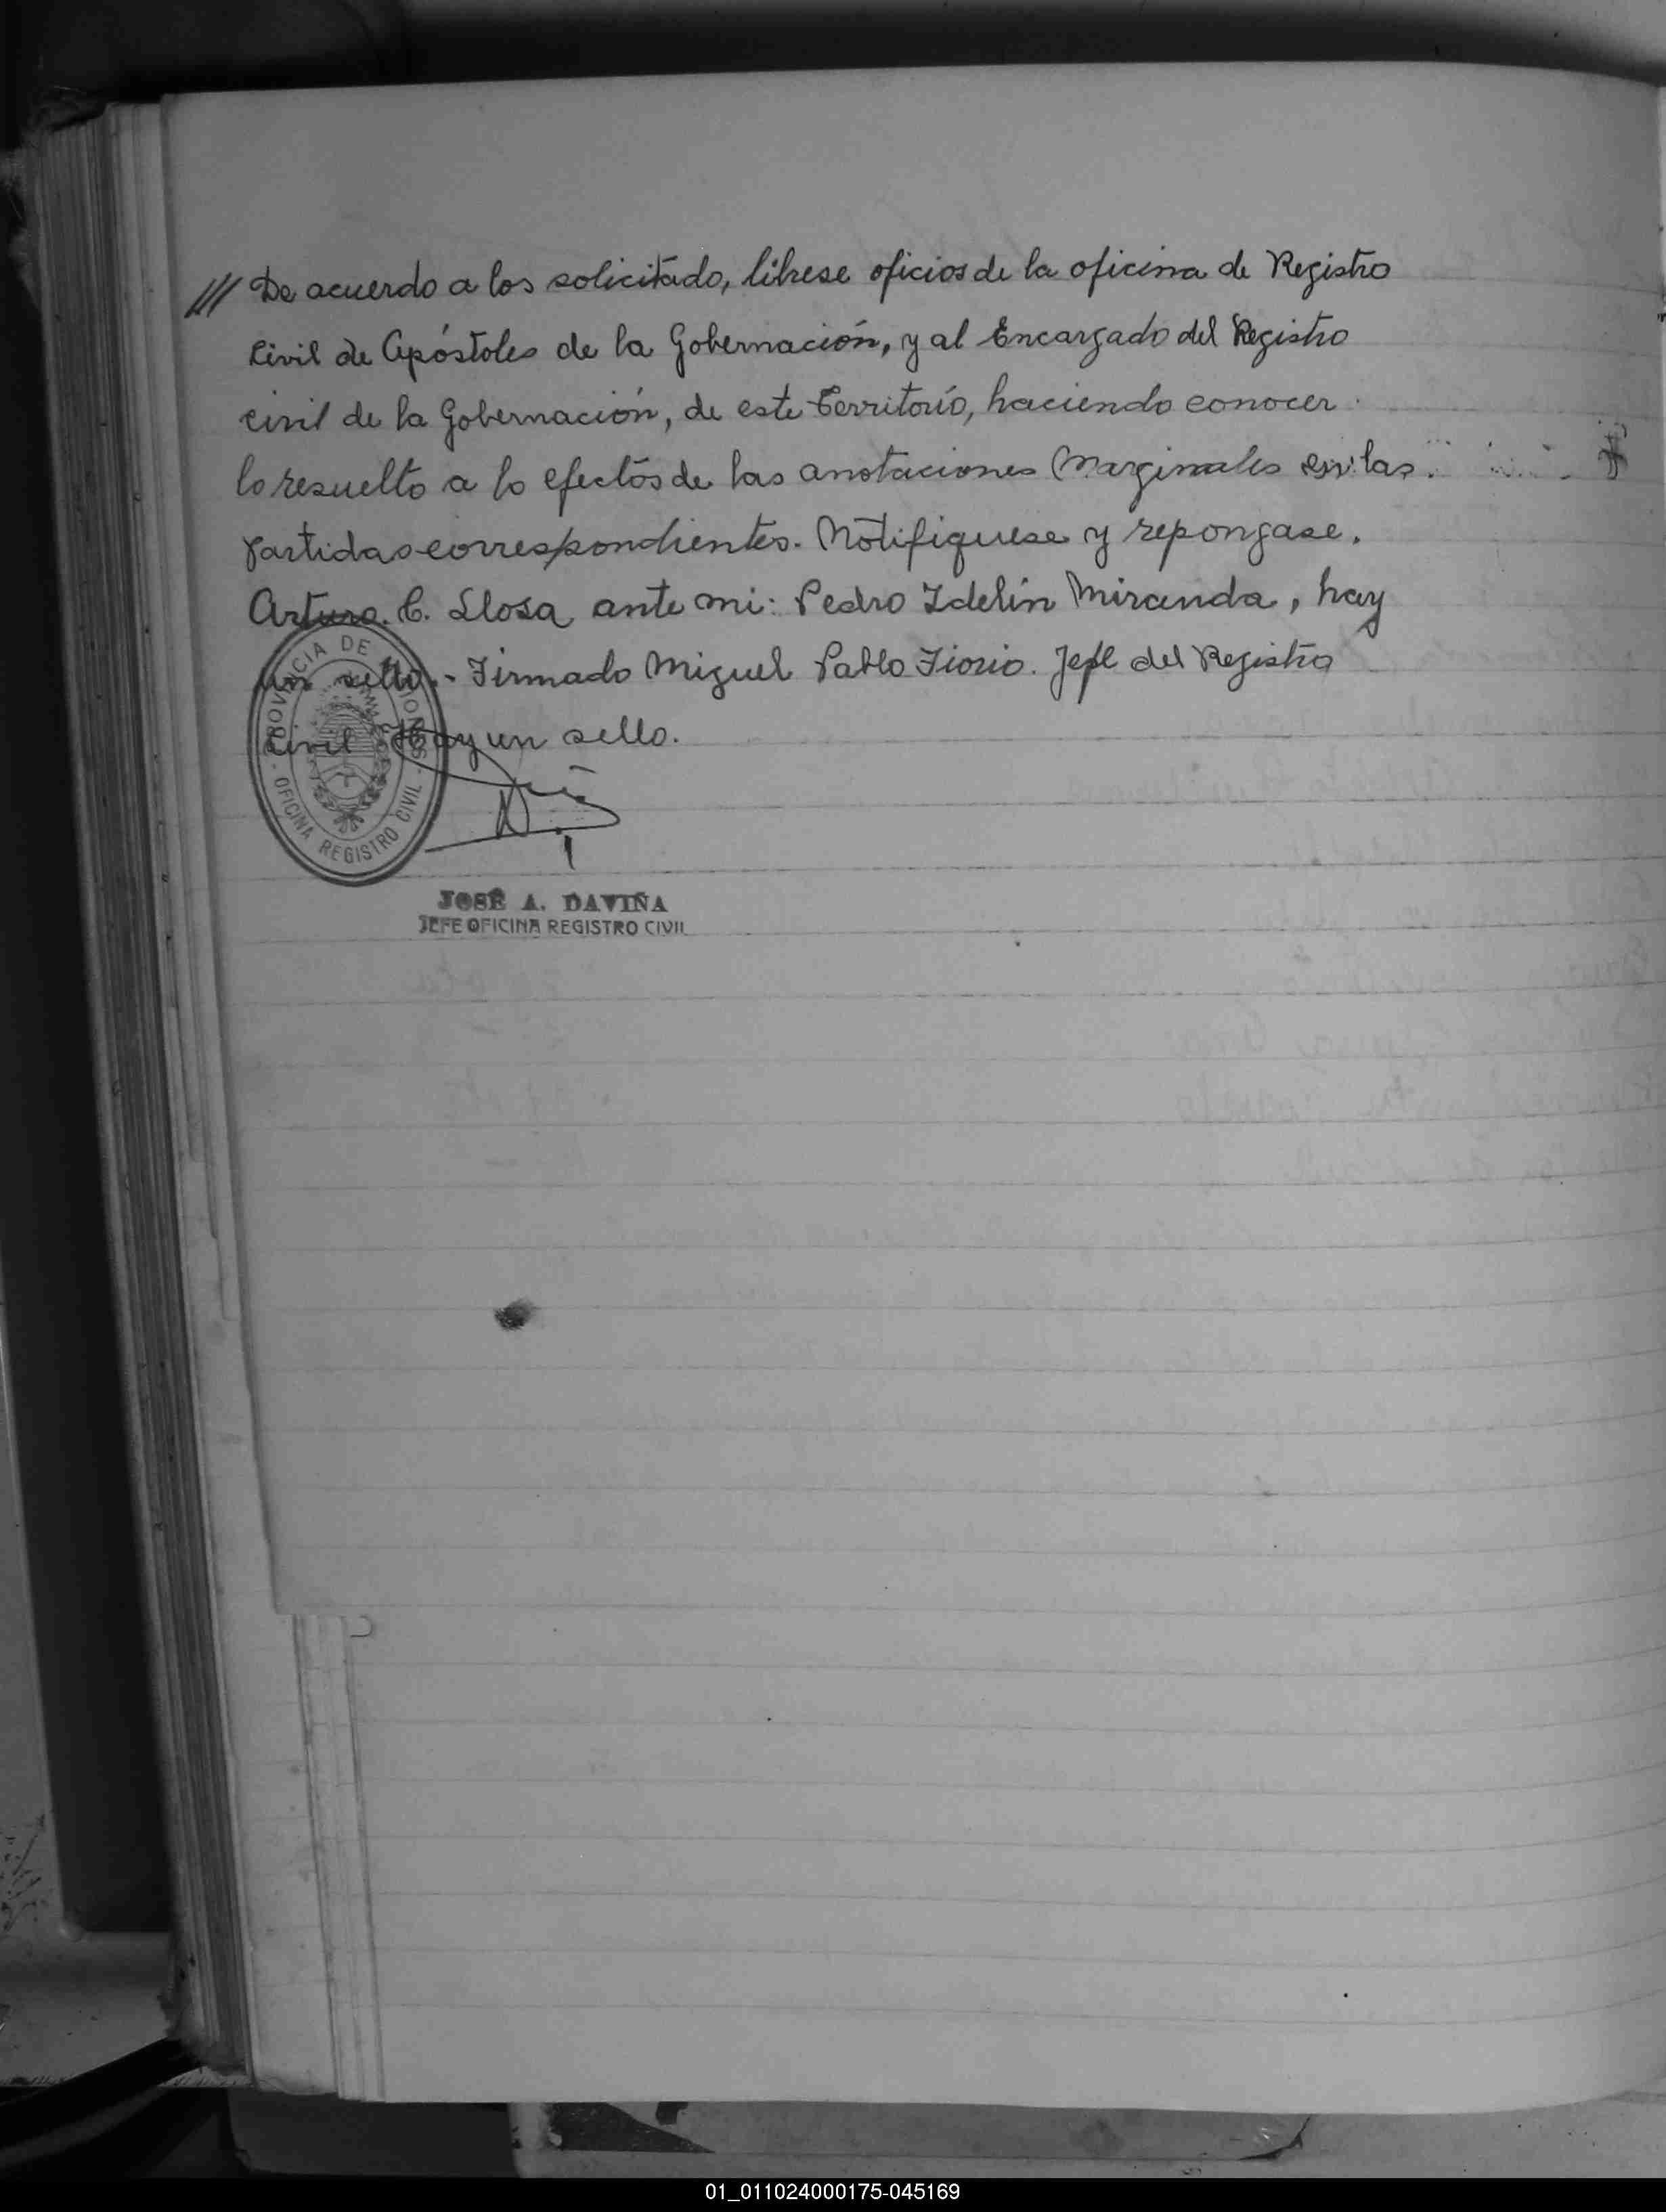 /// De acuerdo a los solicitado, librese oficios de la oficina de Registro
Civil de Apóstoles de la Gobernación, y al Encargado del Registro
civil de la Gobernación, de este Territorio, haciendo conocer
lo resuelto a lo efectos de las anotaciones Marginales en las
partidas correspondientes. Notifiquese y repongase.
Arturo. C. Llosa ante mi: Pedro Idelin Miranda, hay
un sello.- Firmado Miguel Pablo Fiorio. Jefe del Registro
Civil Hay un sello.
PROVINCIA DE MISIONES
OFICINA REGISTRO CIVIL
JOSÉ A. DAVIÑA
JEFE OFICINA REGISTRO CIVIL
01_011024000175-045169